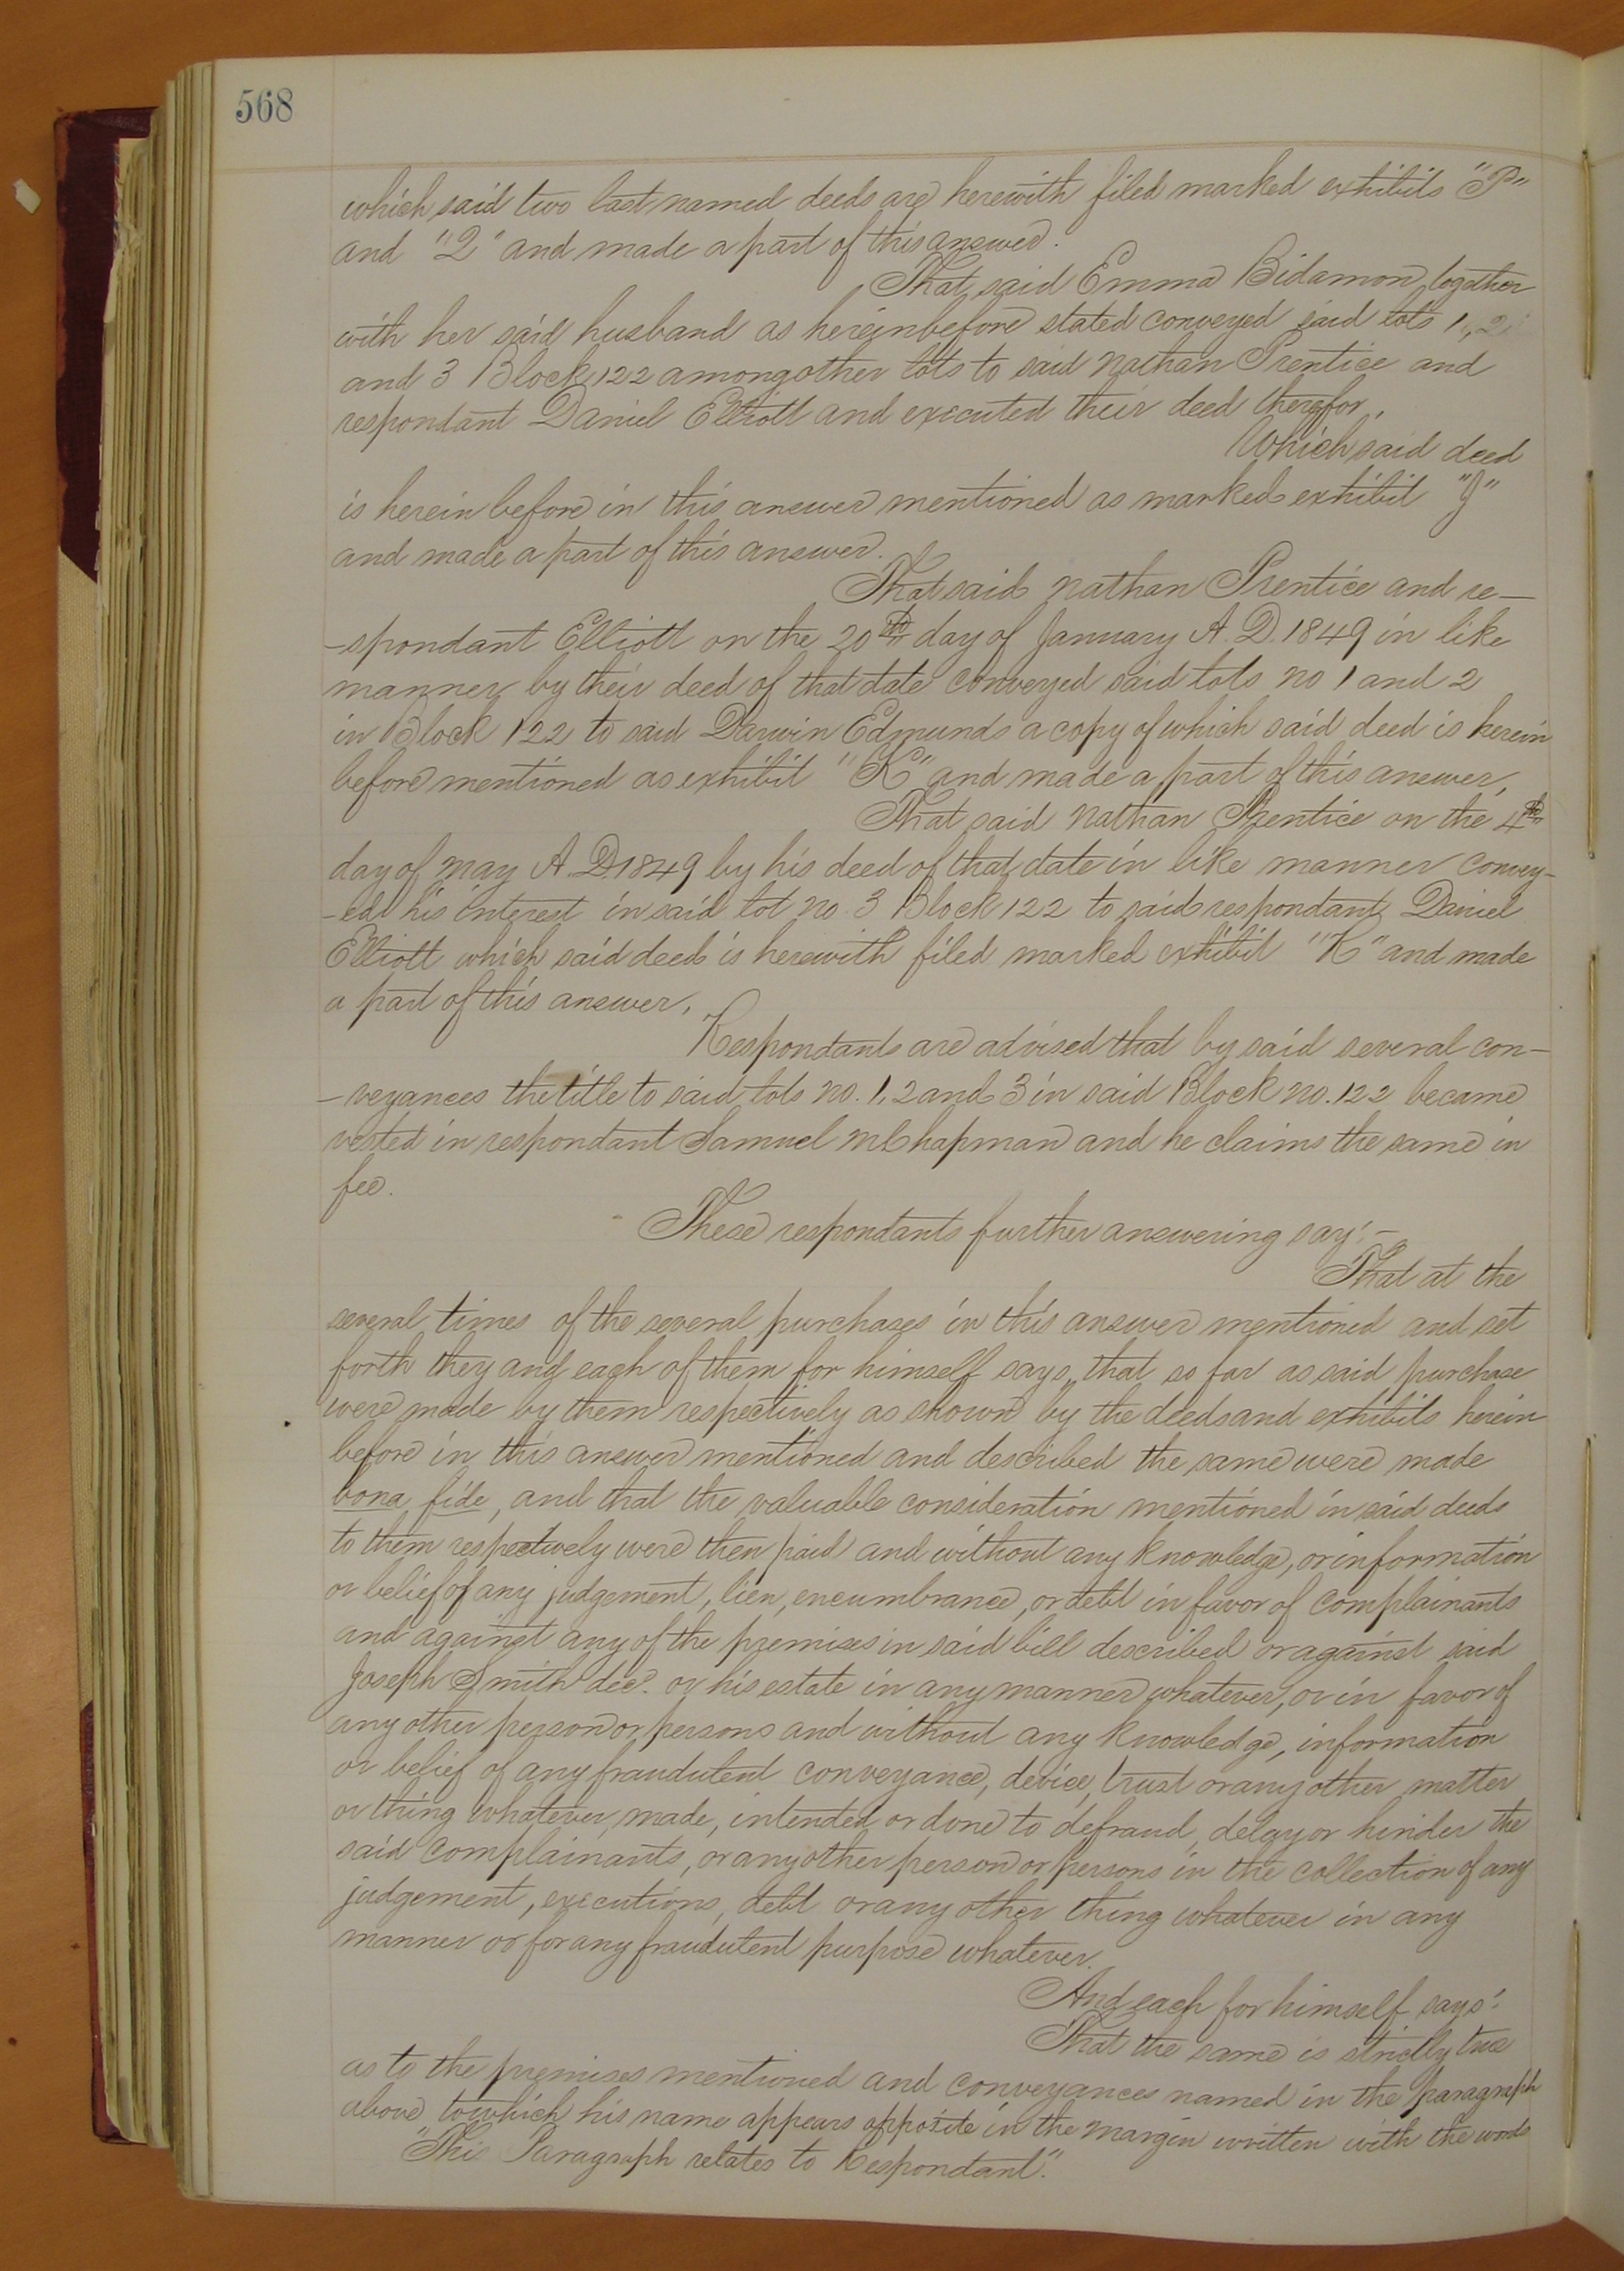 568
which said two last named deeds are herewith filed marked exhibits "P"
and "Q" and made a part of this answer.
That said Emma Bidamon together
with her said husband as hereinbefore stated conveyed said lots 1, 2
and 3 Block 122 among other lots to said Nathan Prentice and
respondant Daniel Elliott and executed their deed therefor,
Which said deed
is herein before in this answer mentioned as marked exhibit "J"
and made a part of this answer.
That said Nathan Prentice and re-
-spondant Elliott on the 20th day of January A. D. 1849 in like
manner by their deed of that date conveyed said lots no 1 and 2
in Block 122 to said Darwin Edmunds a copy of which said deed is herein
before mentioned as exhibit "K" and made a part of this answer,
That said Nathan Prentice on the 4th
day of May A. D. 1849 by his deed of that date in like manner convey-
-ed his interest in said lot no. 3 Block 122 to said respondant Daniel
Elliott which said deed is herewith filed marked exhibit "R" and made
a part of this answer,
Respondants are advised that by said several con-
-veyances the title to said lots no. 1, 2 and 3 in said Block no. 122 became
vested in respondant Samuel M Chapman and he claims the same in
fee.
These respondants further answering say:-
That at the
several times of the several purchases in this answer mentioned and set
forth they and each of them for himself says, that so far as said purchase
were made by them respectively as shown by the deeds and exhibits herein
before in this answer mentioned and described the same were made
bona fide, and that the valuable consideration mentioned in said deeds
to them respectively were then paid and without any knowledge, or information
or belief of any judgement, lien, encumbrance, or debt in favor of complainants
and against any of the premises in said bill described or against said
Joseph Smith dec. or his estate in any manner whatever, or in favor of
any other person or persons and without any knowledge, information
or belief of any fraudulent conveyance, device, trust or any other matter
or thing whatever, made, intended, or done to defraud, delay or hinder the
said complainants, or any other person or persons in the collection of any
judgement, executions, debt or any other thing whatever in any
manner or for any fraudulent purpose whatever.
And each for himself says:
That the same is strictly true
as to the premises mentioned and conveyances named in the paragraph
above to which his name appears opposite in the margin written with the words
"This Paragraph relates to Respondant".